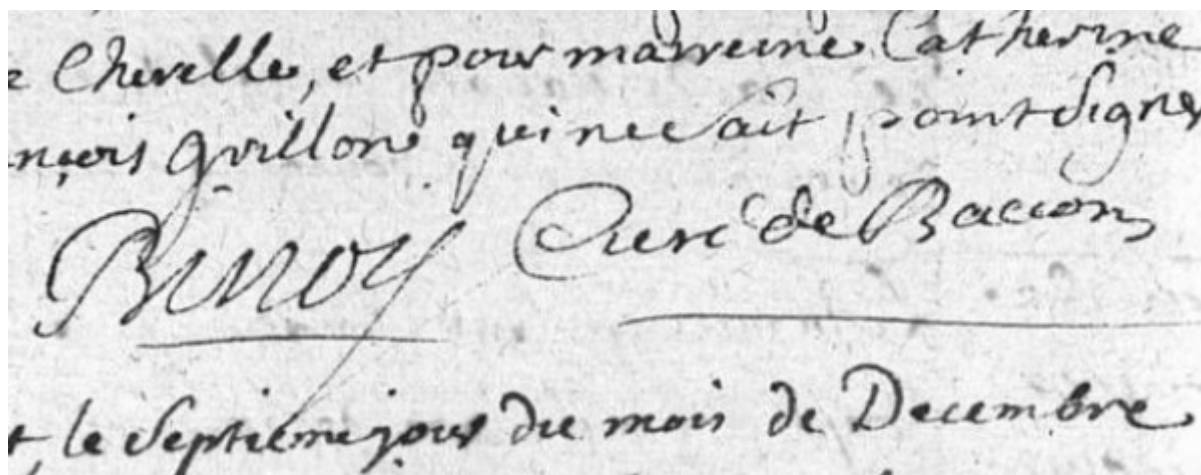 Chevelle, et pour marreine Catherine
nçois Guillon qui ne sait point signer
Binoy Curé de Baccon
le septieme jour du mois de Decembre